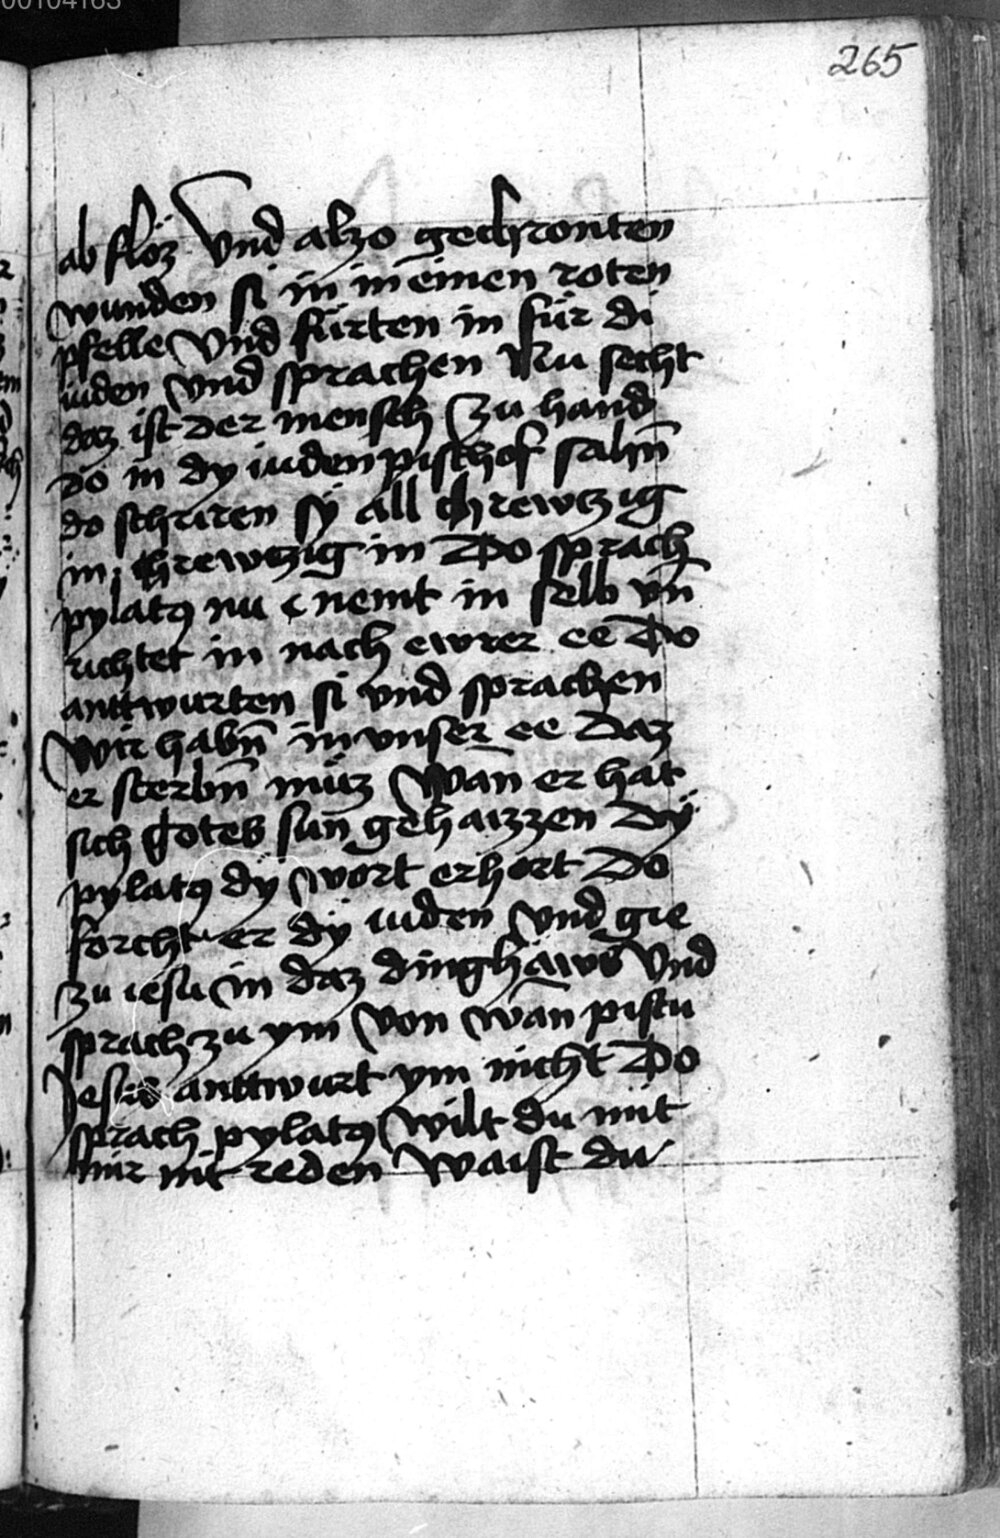 00104163
265
ab flöz Vnd alzo gechronten
wunden si in in einen roten
pfelle Vnd fürten in für di
iuden vnd sprachen Nu secht
daz ist der mensch Zu hand
do in dy iuden pischof sahn̄
do schriren sÿ all chrewtzig
in chrewtzig in Do sprach
pylatꝰ nu nemt in selb vn̄
richtet in nach ewrer ee Do
anttwurten si vnd sprachen
Wir habn̄ in vnser ee Daz
er sterbn̄ müz Wan̄ er hat
sich Gotes sun̄ gehaizzen Dÿ
pylatꝰ dy wort erhort Do
forcht er dÿ iuden vnd gie
zu iesu in daz dinghaws Vnd
sprach zu ym Von wan̄ pistu
Jesus anttwurt ym nicht Do
sprach pylatꝰ Wilt du mit
mir nit reden Waist du